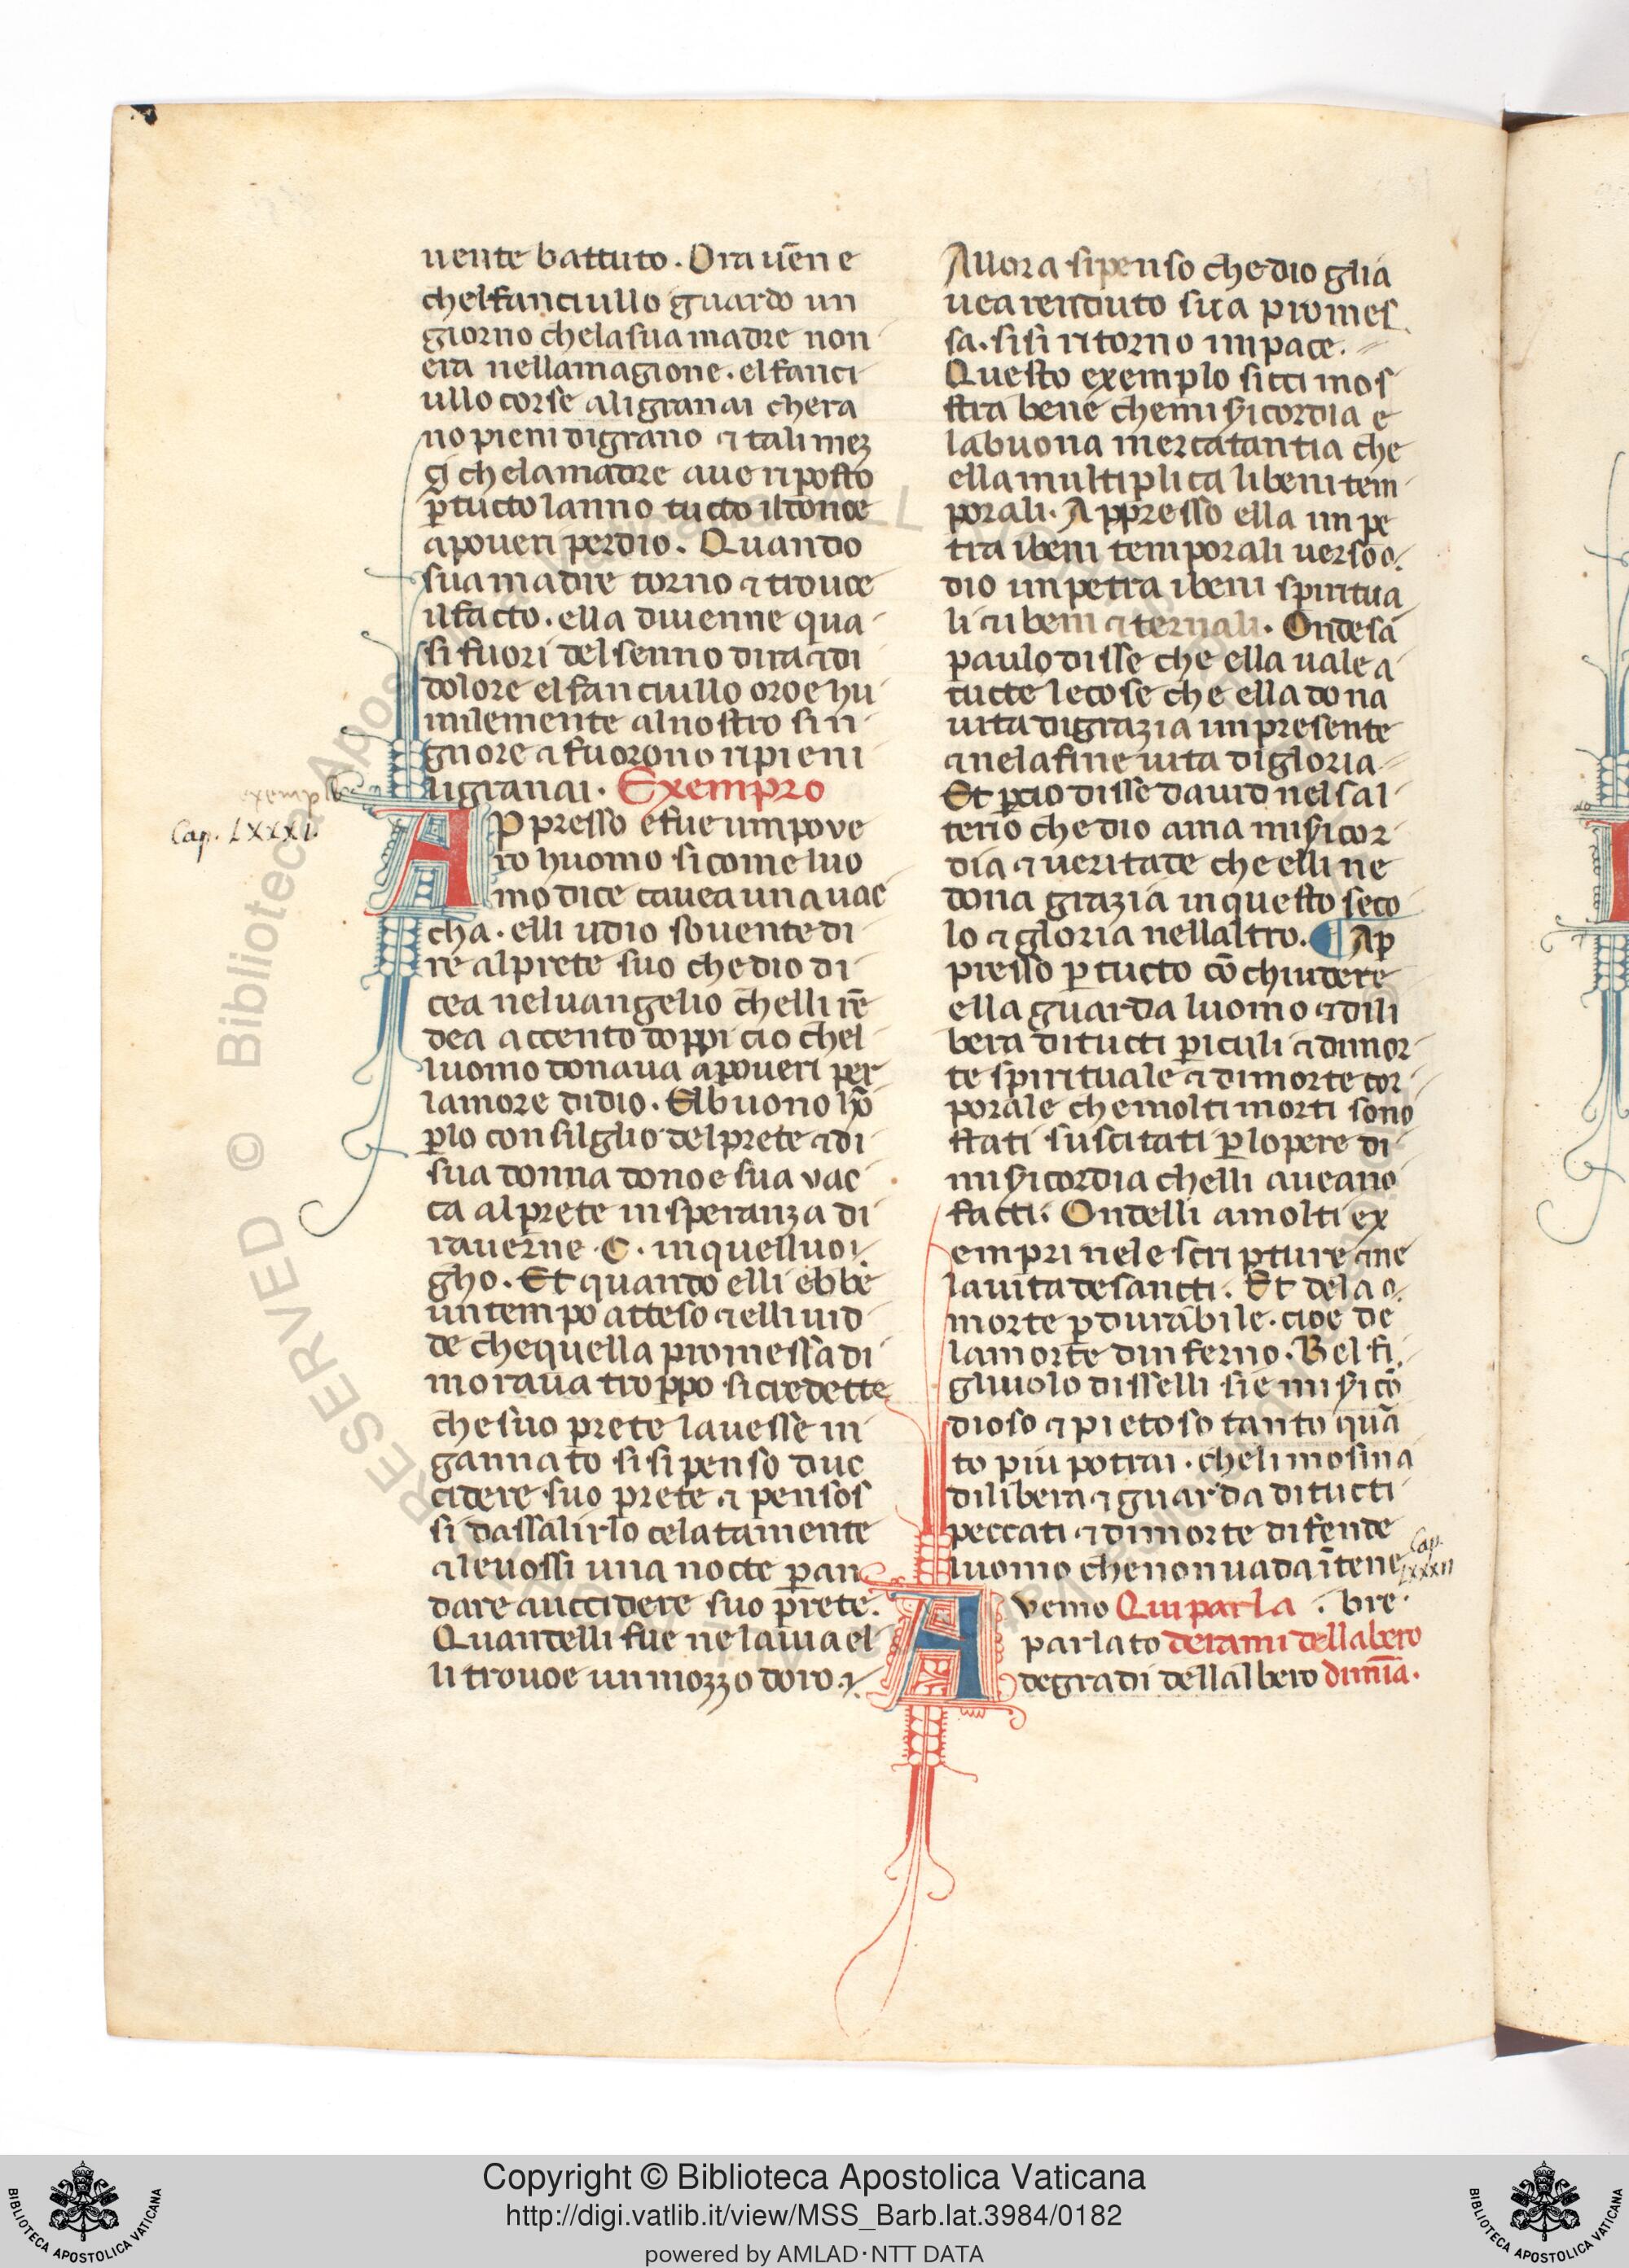 uente battuto. Ora uēn e
chelfanciullo guardo un
giorno chelasua madre non
era nellamagione. elfanci
ullo corse aligranai chera
no pieni digrano ⁊ tali mez
çi chelamadre aue riposto
ꝑtucto lanno tucto ildonoe
apoueri perdio. Quando
sua madre torno ⁊ trouoe
ilfacto. ella diuenne qua
si fuori delsenno dira ⁊ di
dolore elfanciullo oroe hu
milemente alnostro sin
gnore ⁊ fuorono ripieni
ligranai. Exempro
exemplo
Cap. LXXXI.
Appresso efue um pove
ro huomo sicome luo
mo dice cauea una uac
cha. elli udio souente di
re alprete suo che dio di
cea neluangelio chelli rē
dea accento doppi cio chel
luomo donaua apoueri per
lamore didio. Elbuono hō
ꝑlo consilglio delprete ⁊ di
sua donna donoe sua vac
ca alprete insperanza di
rauerne .C. inquelluo
gho. Et quando elli ebbe
untempo atteso ⁊ elli uid
de chequella promessa di
moraua troppo sicredette
che suo prete lauesse in
gannato sisi penso duc
cidere suo prete ⁊ pensos
si dassalirlo celatamente
⁊ leuossi una nocte ꝑ an
dare auccidere suo prete.
Quandelli fue nelauia el
li trouoe un mozzo doro. ⁊
Allora sipenso che dio glia
uea renduto sua promes
sa. sisi ritorno in pace.
Questo exemplo sicci mos
stra bene chemisericordia e
labuona mercatantia che
ella multiplica libeni tem
porali. Appresso ella inpe
tra ibeni temporali uerso
dio inpetra ibeni spiritua
li ⁊ ibeni eternali. Onde sā
paulo disse che ella uale a
tucte lecose che ella dona
uita digrazia inpresente
⁊ nelafine uita digloria
Et ꝑcio disse dauid nelsal
terio che dio ama misericor
dia ⁊ ueritade che elli ne
dona grazia inquesto seco
lo ⁊ gloria nellaltro. Ap
presso ꝑ tucto cōchiudere
ella guarda luomo ⁊ dili
bera ditucti ꝑiculi ⁊ dimor
te spirituale ⁊ dimorte cor
porale che molti morti sono
stati suscitati ꝑlopere di
misericordia chelli aueano
facti. Ondelli a molti ex
empri nele scripture ⁊ ne
lauita desancti. Et dela
morte ꝑdurabile. cioe de
lamorte dinferno. Bel fi
gliuolo disselli sie misericō
dioso ⁊ pietoso tanto quā
to piu potrai. chelimosina
dilibera ⁊ guarda ditucti
peccati ⁊ dimorte difende
luomo chenonuada ītene
Cap. LXXXII
Avemo Qui parla bre
parlato derami dellalbero
degradi dellalbero dimīa.
Copyright © Biblioteca Apostolica Vaticana
http://digi.vatlib.it/view/MSS_Barb.lat.3984/0182
powered by AMLAD·NTT DATA
BIBLIOTECA APOSTOLICA VATICANA
BIBLIOTECA APOSTOLICA VATICANA